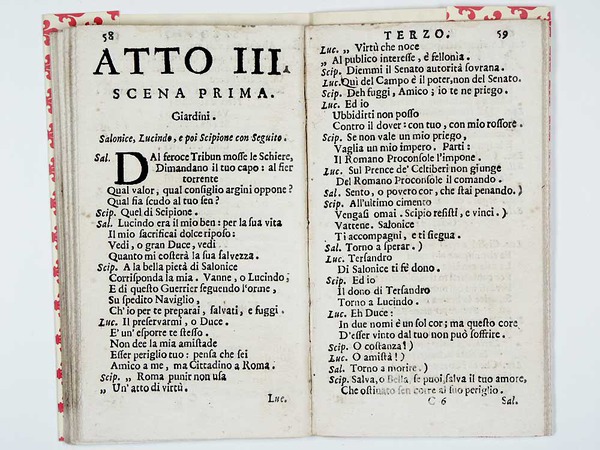 58
ATTO III.
SCENA PRIMA.
Giardini.
Salonice, Lucindo, e poi Scipione con Seguito.
Sal. DAl feroce Tribun mosse le Schiere,
Dimandano il tuo capo: al fier
torrente
Qual valor, qual consiglio argini oppone?
Qual fia scudo al tuo sen?
Scip. Quel di Scipione.
Sal. Lucindo era il mio ben: per la sua vita
Il mio sacrificai dolce riposo:
Vedi, o gran Duce, vedi
Quanto mi costerà la sua salvezza.
Scip. A la bella pietà di Salonice
Corrisponda la mia. Vanne, o Lucindo;
E di questo Guerrier seguendo l'orme,
Su spedito Naviglio,
Ch'io per te preparai, salvati, e fuggi.
Luc. Il preservarmi, o Duce.
E' un' esporre te stesso.
Non dee la mia amistade
Esser periglio tuo: pensa che sei
Amico a me, ma Cittadino a Roma.
Scip. „ Roma punir non usa
„ Un' atto di virtù.
Luc.
TERZO. 59
Luc. „ Virtù che noce
„ Al publico interesse, è fellonia.
Scip. Diemmi il Senato autorità sovrana.
Luc. Quì del Campo è il poter, non del Senato.
Scip. Deh fuggi, Amico; io te ne priego.
Luc. Ed io
Ubbidirti non posso
Contro il dover: con tuo, con mio rossore.
Scip. Se non vale un mio priego,
Vaglia un mio impero. Parti:
Il Romano Proconsole l'impone.
Luc. Sul Prence de' Celtiberi non giunge
Del Romano Proconsole il comando.
Sal. Sento, o povero cor, che stai penando.)
Scip. All'ultimo cimento
Vengasi omai. Scipio resisti, e vinci.)
Vattene. Salonice
Ti accompagni, e ti siegua.
Sal. Torno a sperar.)
Luc. Tersandro
Di Salonice ti fè dono.
Scip. Ed io
Il dono di Tersandro
Torno a Lucindo.
Luc. Eh Duce:
In due nomi è un sol cor; ma questo core
D'esser vinto dal tuo non può soffrire.
Scip. O costanza!)
Luc. O amistà!)
Sal. Torno a morire.)
Scip. Salva, o Bella, se puoi, salva il tuo amore,
Che ostinato sen corre al suo periglio.
C 6 Sal.